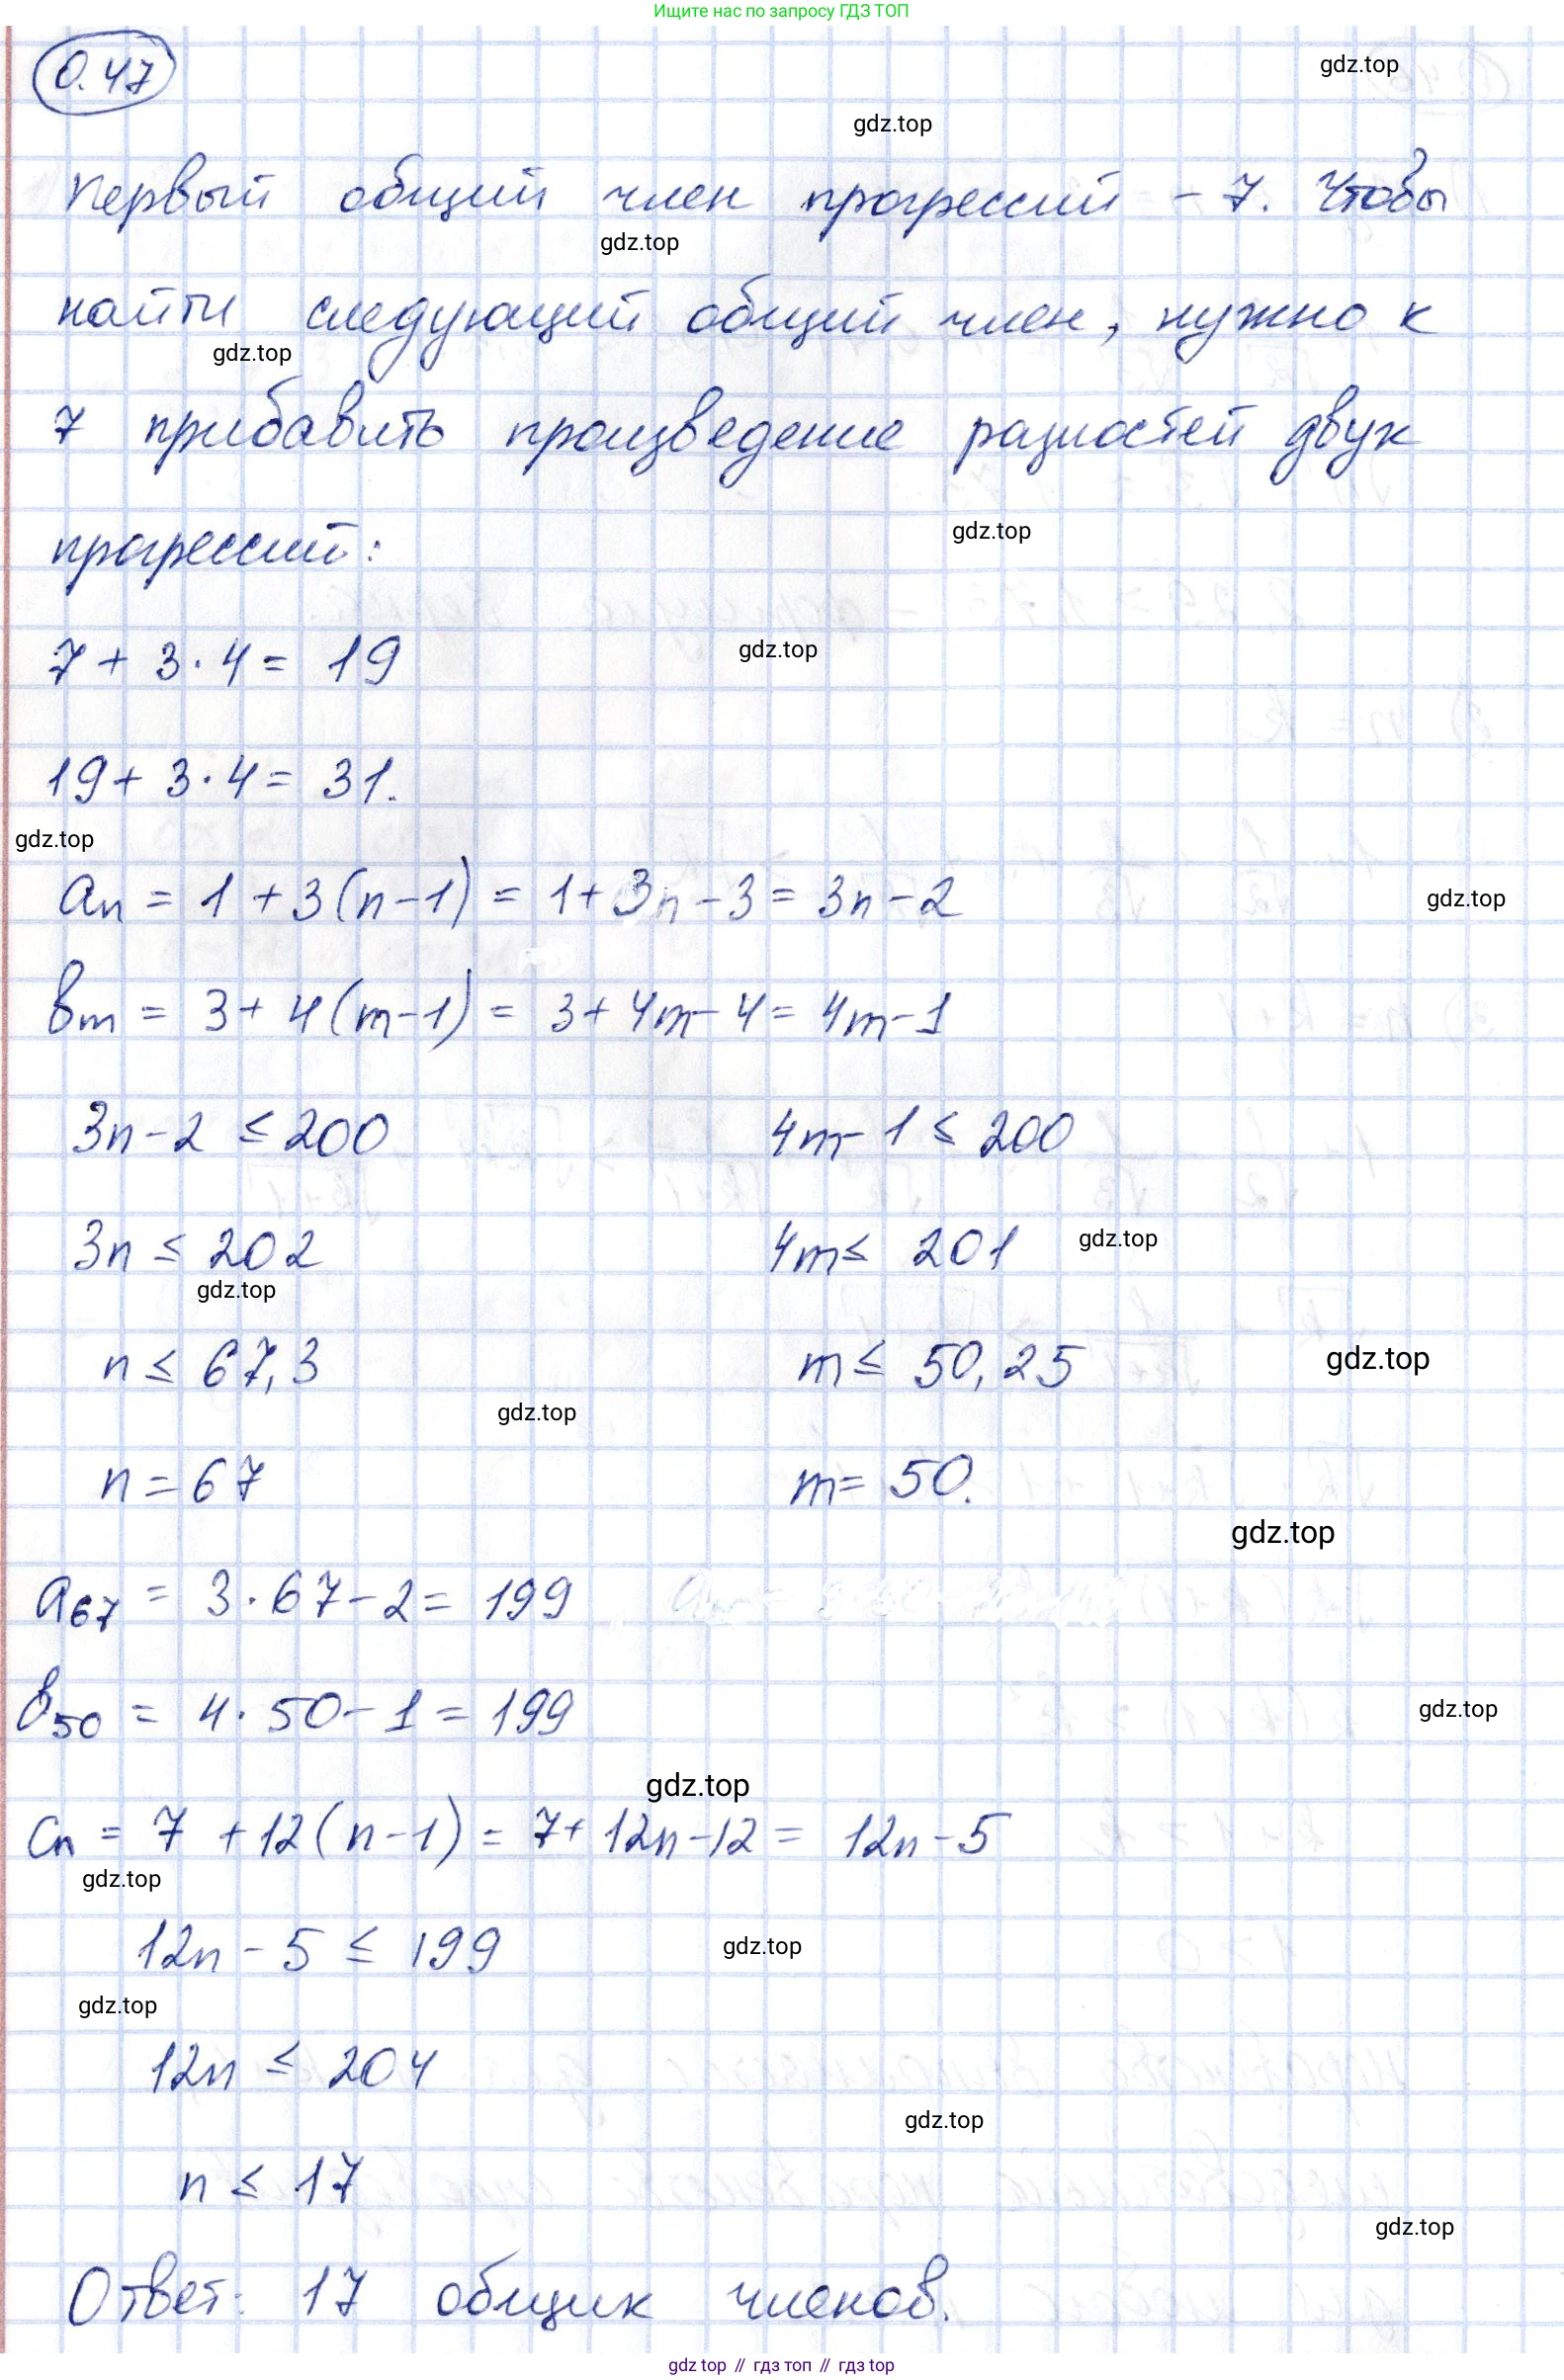 Ищите нас по запросу ГДЗ ТОП
0.47
gdz.top
gdz.top
Первый общий член прогрессий - 7. Чтобы
gdz.top
найти следующий общий член, нужно к
gdz.top
7 прибавить произведение разностей двух
gdz.top
прогрессий:
7 + 3 · 4 = 19
gdz.top
19 + 3 · 4 = 31.
gdz.top
aₙ = 1 + 3(n-1) = 1 + 3n - 3 = 3n - 2
gdz.top
вₘ = 3 + 4(m-1) = 3 + 4m - 4 = 4m - 1
3n - 2 ≤ 200 4m - 1 ≤ 200
3n ≤ 202 4m ≤ 201 gdz.top
gdz.top
n ≤ 67,3 m ≤ 50,25 gdz.top
gdz.top
n = 67 m = 50.
gdz.top
a₆₇ = 3 · 67 - 2 = 199
в₅₀ = 4 · 50 - 1 = 199 gdz.top
gdz.top
cₙ = 7 + 12(n-1) = 7 + 12n - 12 = 12n - 5
gdz.top
12n - 5 ≤ 199 gdz.top
gdz.top
12n ≤ 204
gdz.top
n ≤ 17
gdz.top
Ответ: 17 общих членов.
gdz top // гдз топ // гдз top